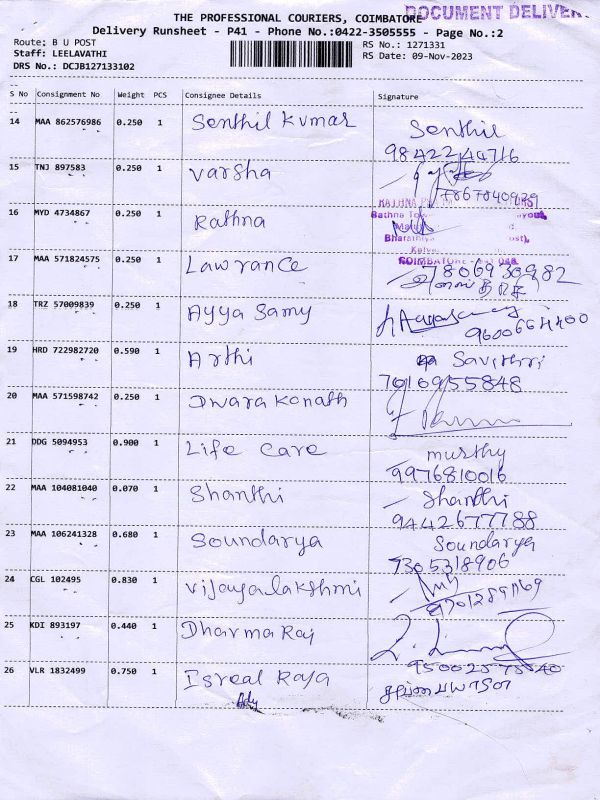 THE PROFESSIONAL COURIERS, COIMBATORE
DOCUMENT DELIVER
Delivery Runsheet - P41 - Phone No.:0422-3505555 - Page No.:2
Route: B U POST
RS No.: 1271331
Staff: LEELAVATHI
RS Date: 09-Nov-2023
DRS No.: DCJB127133102
S No Consignment No Weight PCS Consignee Details Signature
14 MAA 862576986 0.250 1 Senthil Kumar Senthil
9842244716
15 TNJ 897583 0.250 1 Varsha
16 MYD 4734867 0.250 1 Rathna
COIMBATORE
17 MAA 571824575 0.250 1 Lawrance 7806930982
18 TRZ 57009839 0.250 1 Ayya Samy
9600664400
19 HRD 722982720 0.590 1 Arthi Savithri
7010955848
20 MAA 571598742 0.250 1 Dwarakanath
21 DDG 5094953 0.900 1 Life Care murthy
9976810016
22 MAA 104081040 0.070 1 Shanthi Shanthi
9442677788
23 MAA 106241328 0.680 1 Soundarya Soundarya
7305318906
24 CGL 102495 0.830 1 Vijayalakshmi
25 KDI 893197 0.440 1 Dharma Raj
26 VLR 1832499 0.750 1 Isreal Raja